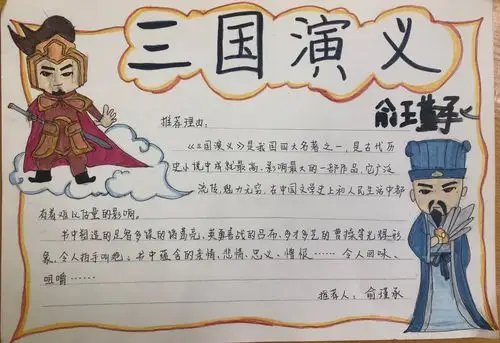 三国演义
俞瑾承
推荐理由:
《三国演义》是我国四大名著之一,是古代历
史小说中成就最高、影响最大的一部作品,它广泛
流传,魅力无穷,在中国文学史上和人民生活中都
有着难以估量的影响。
书中塑造的足智多谋的诸葛亮、英勇善战的吕布、多才多艺的曹操等光辉形
象,令人拍手叫绝。书中蕴含的友情、悲情、忠义、憎恨……令人回味、
咀嚼……
推荐人:俞瑾承